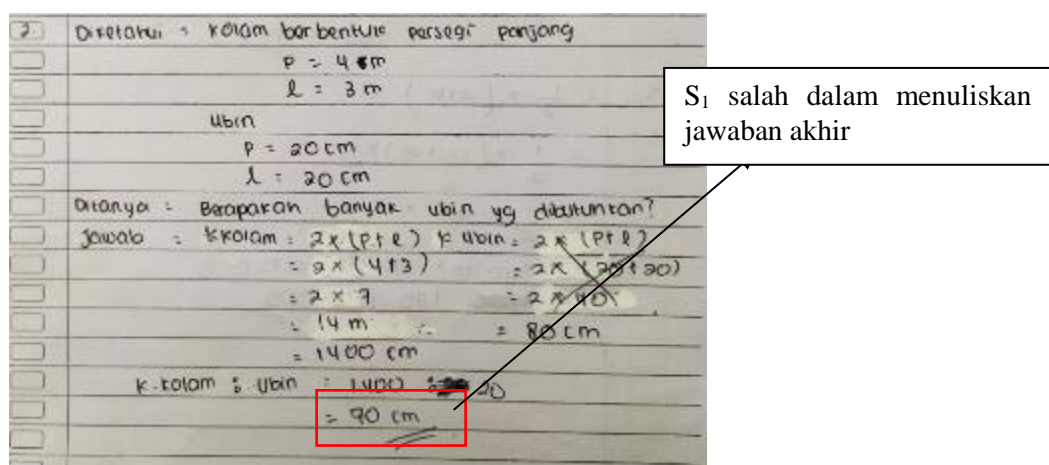 2. Diketahui : Kolam berbentuk persegi panjang
p = 4 m
l = 3 m
ubin
p = 20 cm
l = 20 cm
Ditanya : Berapakah banyak ubin yg dibutuhkan?
Jawab : K kolam = 2 x (p+l) K ubin = 2 x (p+l)
= 2 x (4+3) = 2 x (20+20)
= 2 x 7 = 2 x 40
= 14 m = 80 cm
= 1400 cm
K. kolam : ubin = 1400 : 20
= 70 cm
S₁ salah dalam menuliskan
jawaban akhir